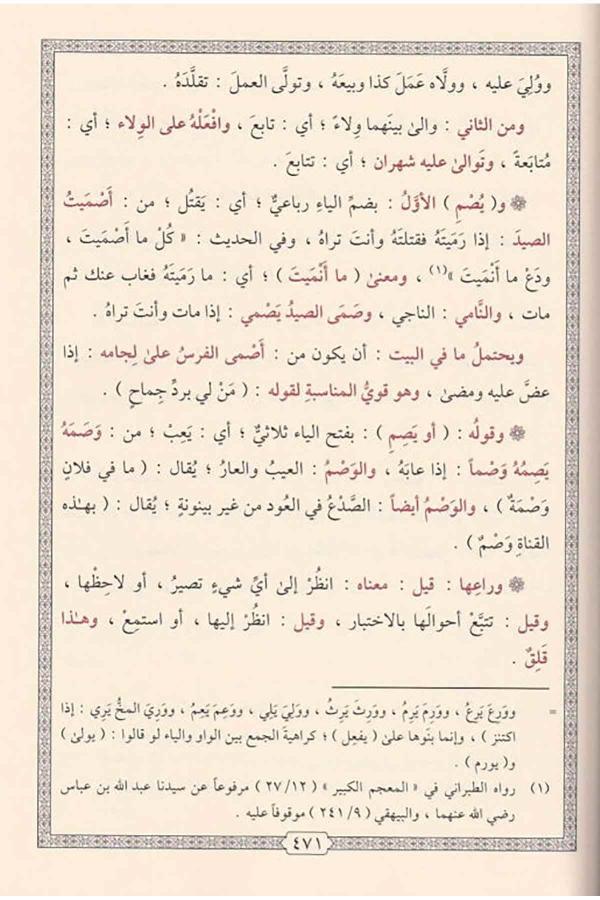 ووُلِيَ عليه ، وولَّاه عَمَلَ كذا وبيعَهُ ، وتولَّى العملَ : تقلَّدَهُ .
ومن الثاني : والىٰ بينَهما وِلاءً ؛ أي : تابعَ ، وافْعَلْهُ على الوِلاء ؛ أي :
مُتابَعةً ، وتَوالىٰ عليه شهران ؛ أي : تتابعَ .
❁ و( يُصْمِ ) الأوَّلُ : بضمِّ الياءِ رباعيٌّ ؛ أي : يَقتُل ؛ من : أَصْمَيتُ
الصيدَ : إذا رَمَيتَهُ فقتلتَهُ وأنتَ تراهُ ، وفي الحديث : « كُلْ ما أَصْمَيتَ ،
ودَعْ ما أَنْمَيتَ »(١) ، ومعنىٰ ( ما أَنْمَيتَ ) ؛ أي : ما رَمَيتَهُ فغاب عنك ثم
مات ، والنَّامي : الناجي ، وصَمَى الصيدُ يَصْمي : إذا مات وأنتَ تراهُ .
ويحتملُ ما في البيت : أن يكون من : أَصْمى الفرسُ علىٰ لِجامه : إذا
عضَّ عليه ومضىٰ ، وهو قويُّ المناسبةِ لقوله : ( مَنْ لي بردِّ جِماحٍ ) .
❁ وقولُه : ( أو يَصِمِ ) : بفتح الياء ثلاثيٌّ ؛ أي : يَعِبْ ؛ من : وَصَمَهُ
يَصِمُهُ وَصْماً : إذا عابَهُ ، والوَصْمُ : العيبُ والعارُ ؛ يُقال : ( ما في فلان
وَصْمَةٌ ) ، والوَصْمُ أيضاً : الصَّدْعُ في العُود من غير بينونةٍ ؛ يُقال : ( بهـٰذه
القناةِ وَصْمٌ ) .
❁ وراعِها : قيل : معناه : انظُرْ إلىٰ أيِّ شيءٍ تصيرُ ، أو لاحِظْها ،
وقيل : تتبَّعْ أحوالَها بالاختبار ، وقيل : انظُرْ إليها ، أو استمِعْ ، وهـٰذا
قَلِقٌ .
= ووَرِعَ يَرِعُ ، ووَرِمَ يَرِمُ ، ووَرِثَ يَرِثُ ، ووَلِيَ يَلِي ، ووَعِمَ يَعِمُ ، ووَرِيَ المخُّ يَرِي : إذا
اكتنز ) ، وإنما بنَوها علىٰ ( يفعِل ) ؛ كراهيةَ الجمع بين الواو والياء لو قالوا : ( يولىٰ )
و( يورم ) .
(١) رواه الطبراني في « المعجم الكبير » ( ٢٧/١٢ ) مرفوعاً عن سيدنا عبد الله بن عباس
رضي الله عنهما ، والبيهقي ( ٢٤١/٩ ) موقوفاً عليه .
٤٧١